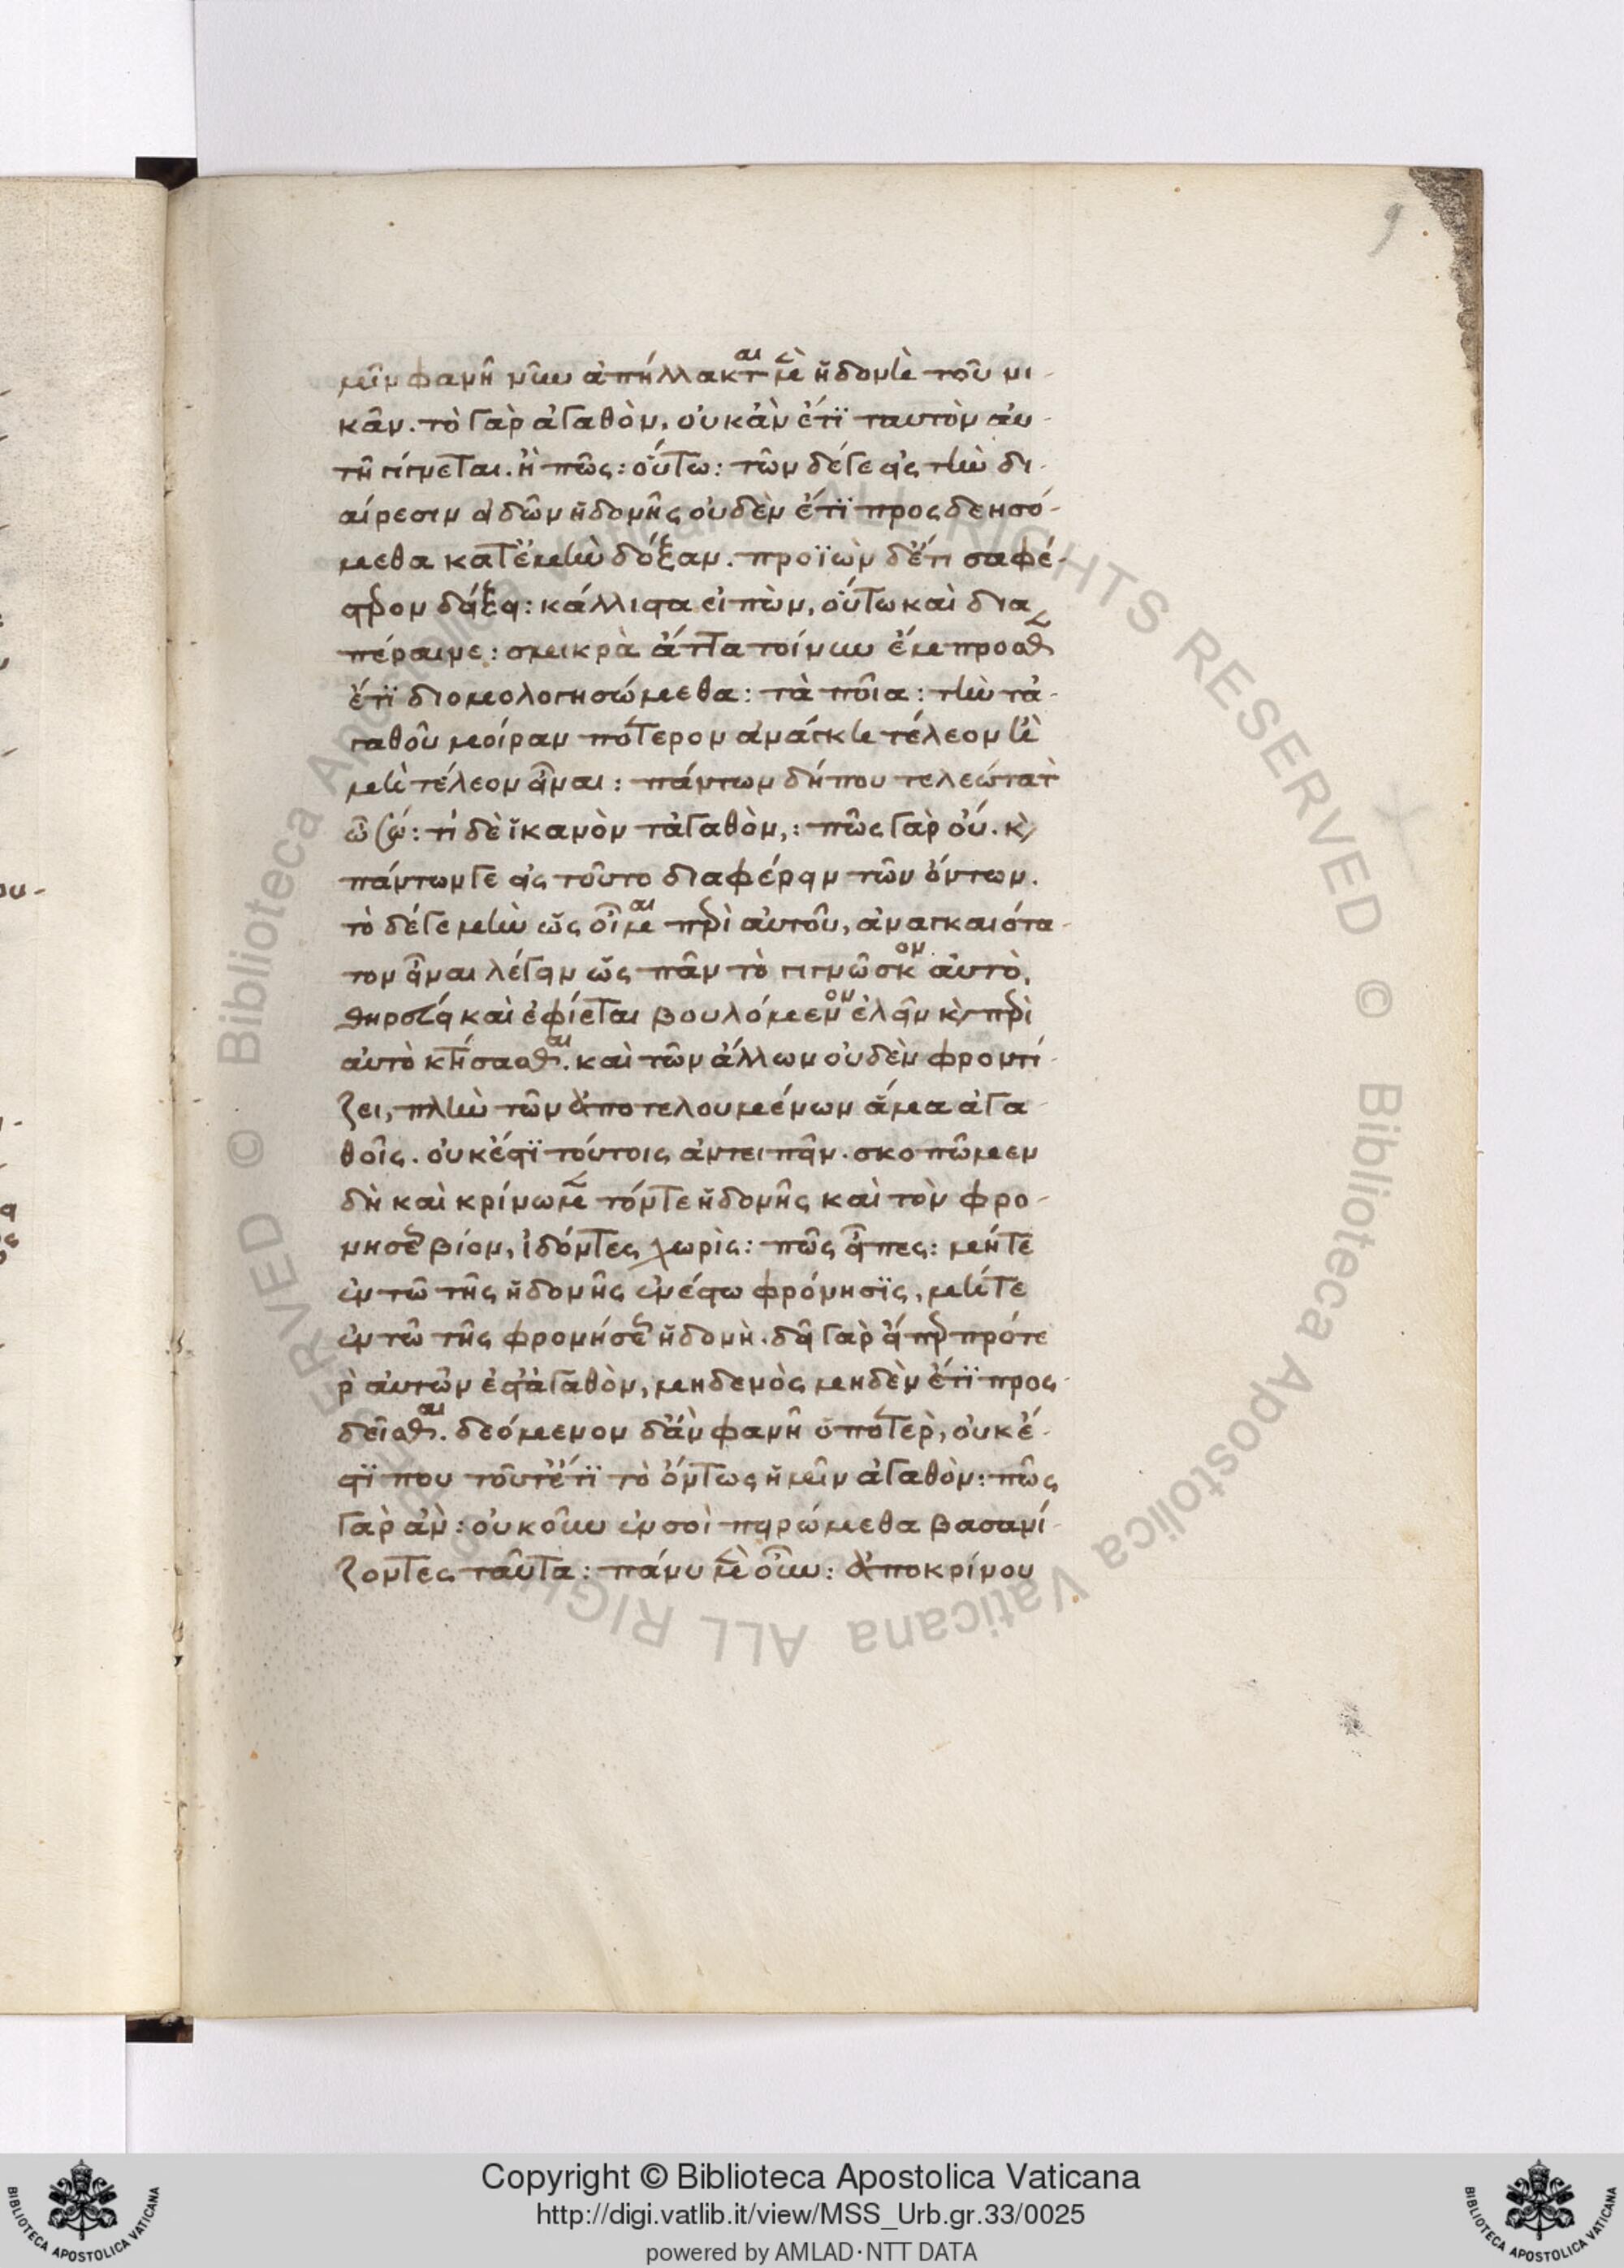 9
μῖν φανῆ νῦν ἀπήλλακται μὲν ἡδονὴ τοῦ νι-
κᾶν. τὸ γὰρ ἀγαθὸν, οὐκ ἂν ἔτι ταυτὸν αυ-
τῆ γίγνεται. ἢ πῶς: οὕτω: τῶν δέ γε εἰς τὴν δι-
αίρεσιν εἰδῶν ἡδονῆς οὐδὲν ἔτι προςδεησό-
μεθα κατ' ἐμὴν δόξαν. προϊὼν δ' ἔτι σαφέ-
στερον δείξει: κάλλιστα εἰπὼν, οὕτω καὶ δια
πέραινε: σμικρὰ ἄττα τοίνυν ἔμπροσθεν
ἔτι διομολογησώμεθα: τὰ ποῖα: τὴν τἀ-
γαθοῦ μοίραν πότερον ἀνάγκη τέλεον ἢ
μὴ τέλεον εἶναι: πάντων δήπου τελεώτατον
ὦ σώ: τί δὲ ἱκανὸν τἀγαθὸν,: πῶς γὰρ οὔ. καὶ
πάντων γε εἰς τοῦτο διαφέρειν τῶν ὄντων.
τὸ δέ γε μὴν ὡς οἶμαι περὶ αὐτοῦ, ἀναγκαιότα-
τον εἶναι λέγειν ὡς πᾶν τὸ γιγνῶσκον αὐτὸ,
θηρεύει καὶ ἐφίεται βουλόμενον ἑλεῖν καὶ περὶ
αὑτὸ κτήσασθαι. καὶ τῶν ἄλλων οὐδὲν φροντί-
ζει, πλὴν τῶν ἀποτελουμένων ἅμα ἀγα-
θοῖς. οὐκ ἔστι τούτοις ἀντειπεῖν. σκοπῶμεν
δὴ καὶ κρίνωμεν τόν τε ἡδονῆς καὶ τὸν φρο-
νήσεως βίον, ἰδόντες χωρίς: πῶς εἶπες: μήτε
ἐν τῶ τῆς ἡδονῆς ἐνέστω φρόνησις, μήτε
ἐν τῶ τῆς φρονήσεως ἡδονὴ. δεῖ γὰρ εἴπερ πότε
ρον αὐτῶν ἐστ' ἀγαθὸν, μηδενὸς μηδὲν ἔτι προς-
δεῖσθαι. δεόμενον δ' ἂν φανῆ ὁπότερον, οὐκ ἔ-
στι που τοῦτ' ἔτι τὸ ὄντως ἡμῖν ἀγαθὸν: πῶς
γὰρ ἄν: οὐκοῦν ἐν σοὶ πειρώμεθα βασανί-
ζοντες ταῦτα: πάνυ μὲν οὖν: ἀποκρίνου
Copyright © Biblioteca Apostolica Vaticana
http://digi.vatlib.it/view/MSS_Urb.gr.33/0025
powered by AMLAD·NTT DATA